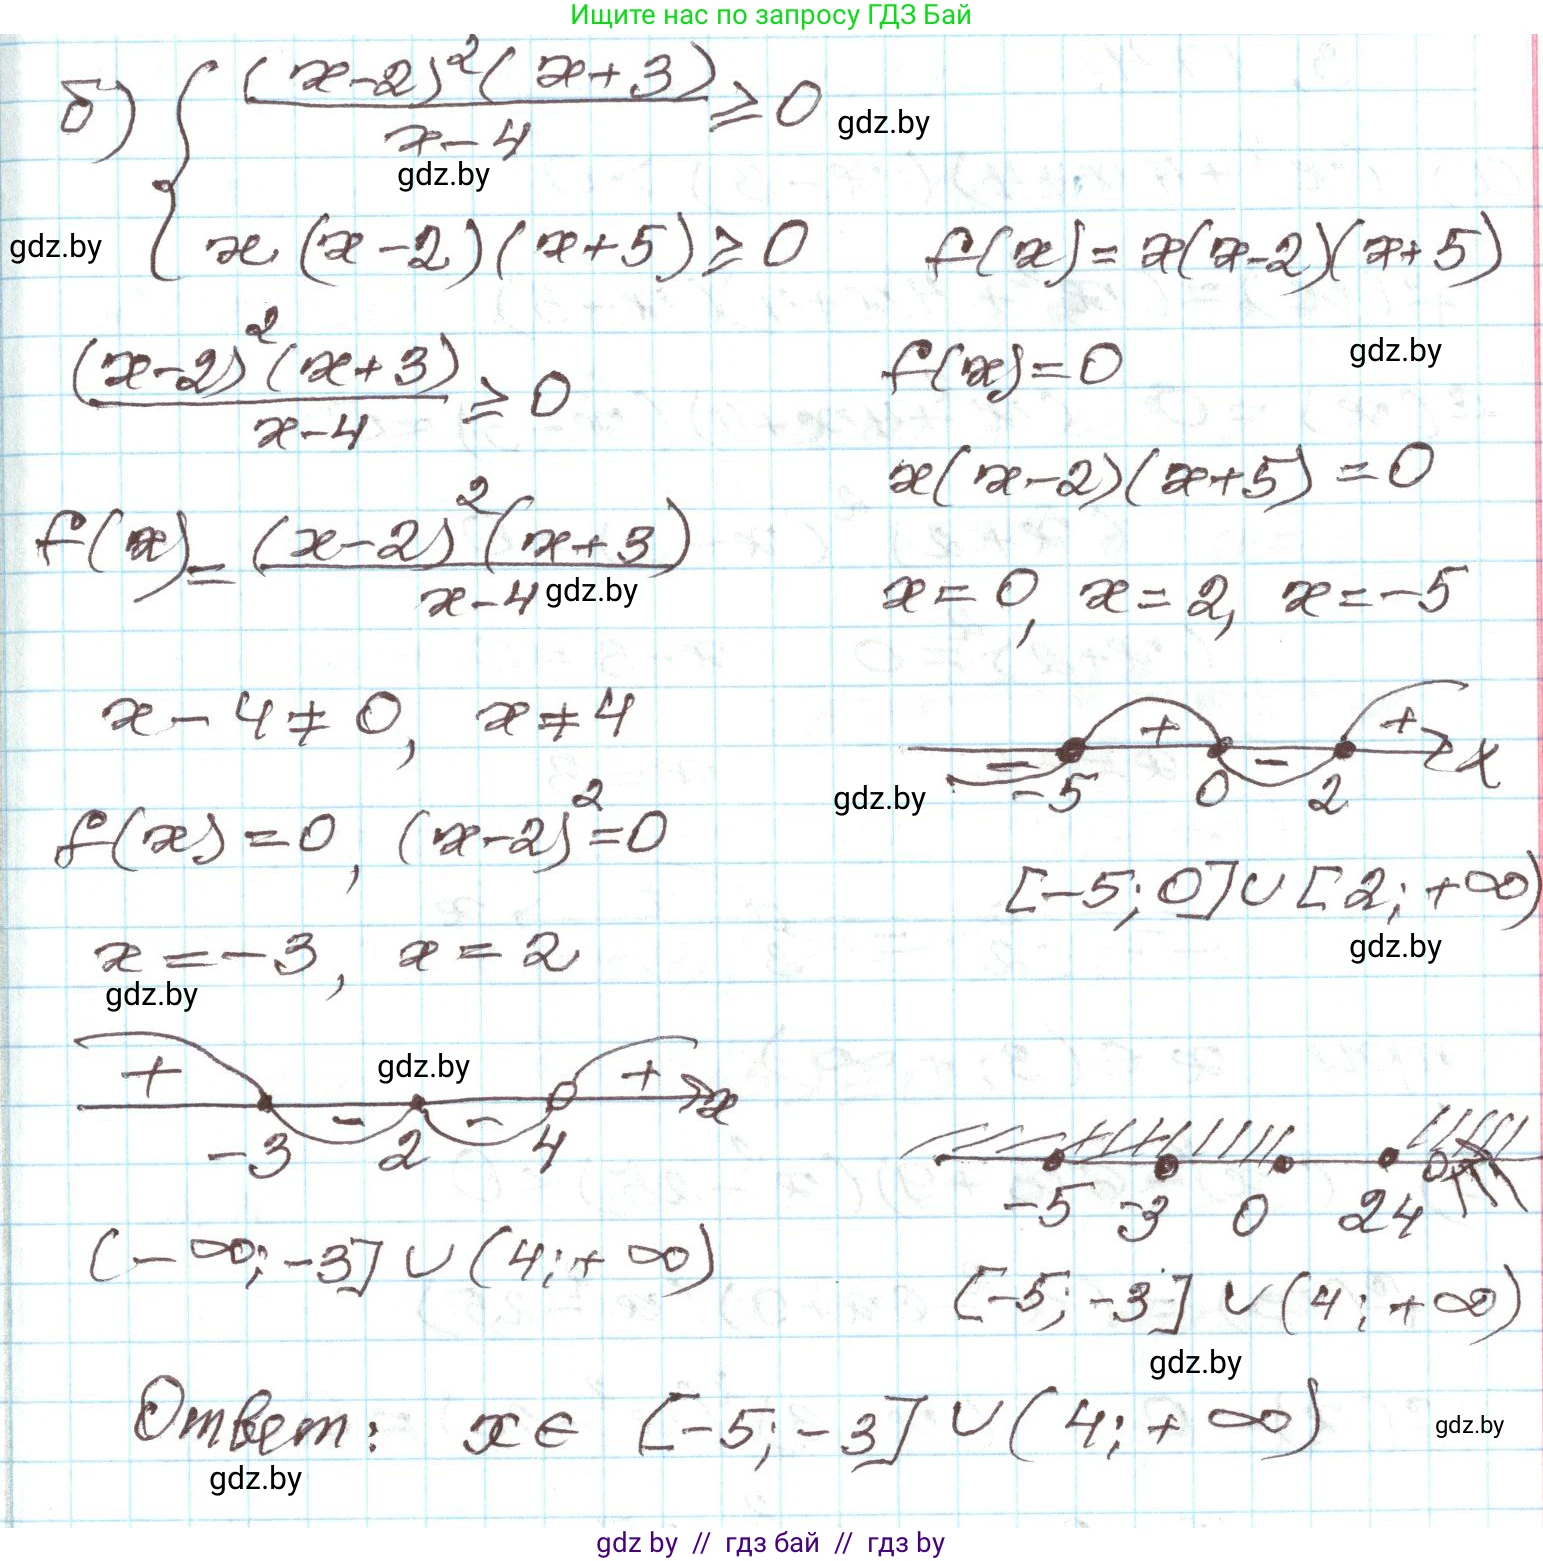 Ищите нас по запросу ГДЗ Бай
б) { (x-2)²(x+3) / x-4 ≥ 0
gdz.by
gdz.by
x(x-2)(x+5) ≥ 0
gdz.by
(x-2)²(x+3) / x-4 ≥ 0
f(x) = (x-2)²(x+3) / x-4
gdz.by
x-4≠0, x≠4
f(x)=0, (x-2)²=0
x=-3, x=2
gdz.by
+ - gdz.by - + x
-3 2 4
(-∞; -3] ∪ (4; +∞)
f(x) = x(x-2)(x+5)
f(x)=0
gdz.by
x(x-2)(x+5)=0
x=0, x=2, x=-5
- + - + x
gdz.by
-5 0 2
[-5; 0] ∪ [2; +∞)
gdz.by
-5 -3 0 2 4
[-5; -3] ∪ (4; +∞)
gdz.by
Ответ: x∈ [-5; -3] ∪ (4; +∞)
gdz.by
gdz.by
gdz by // гдз бай // гдз by